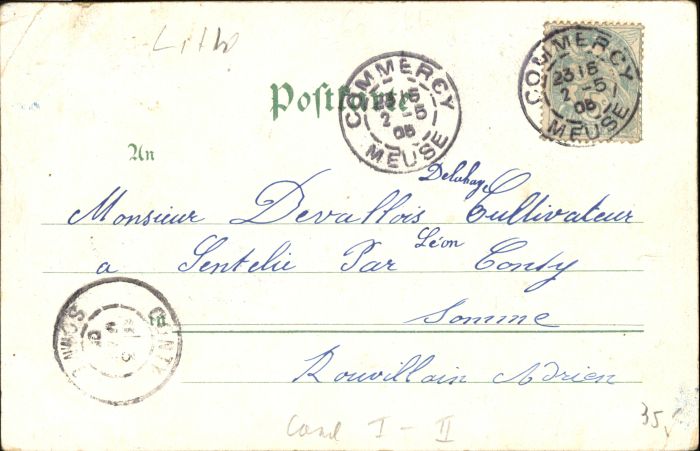 Litho
Postkarte
COMMERCY
23 15
2 -5
05
MEUSE
COMMERCY
23 15
2 -5
05
MEUSE
An
Delahaye
Monsieur Devallois Cultivateur
Léon
a Sentelie Par Conty
Somme
in
CONTY
SOMME
Rouvillain Adrien
Cond I - II
35